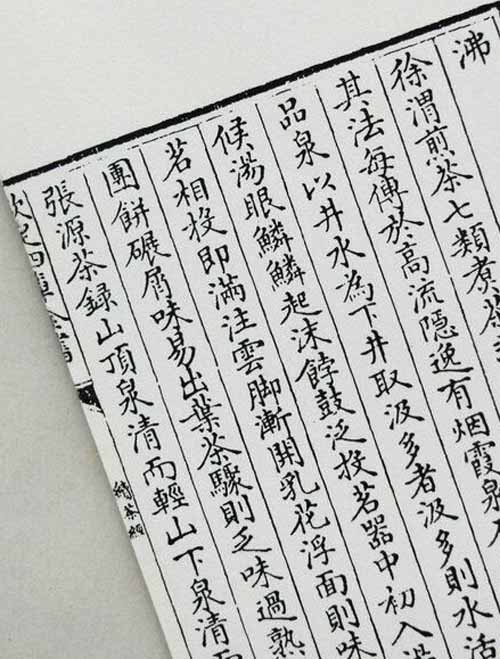 沸
徐渭煎茶七類煮茶
其法每傳於高流隱逸有烟霞泉
品泉以井水為下井取汲多者汲多則水活
候湯眼鱗鱗起沫餑鼓泛投茗器中初入湯
茗相投即滿注雲脚漸開乳花浮面則味
團餅碾屑味易出葉茶驟則乏味過熟
張源茶録山頂泉清而輕山下泉清而
續茶經